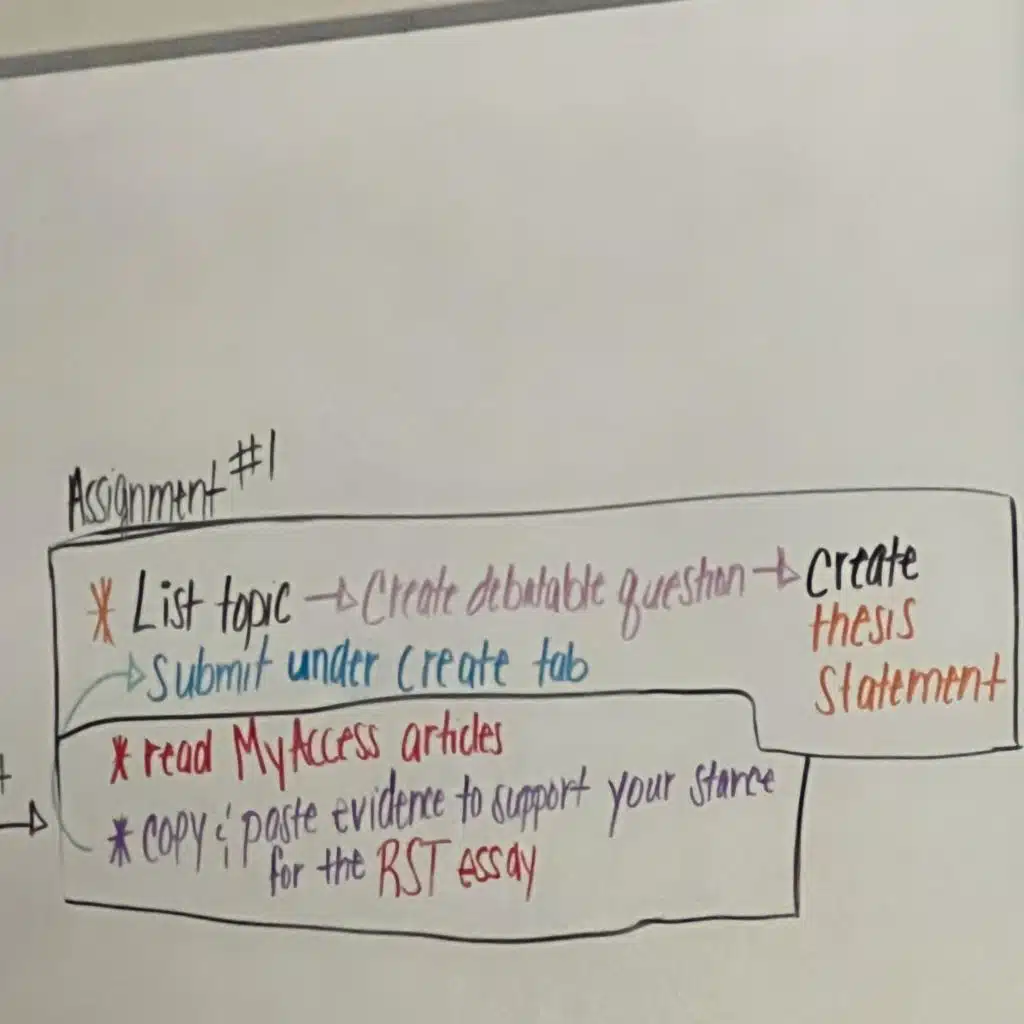 Assignment #1
* List topic → Create debatable question → Create
thesis
Statement
→ Submit under Create tab
* read MyAccess articles
* copy & paste evidence to support your stance
for the RST essay